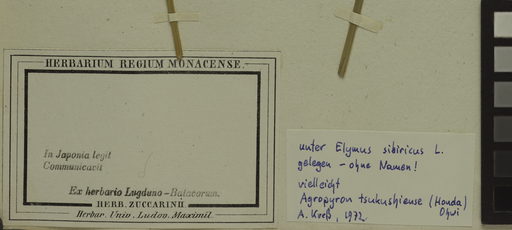 HERBARIUM REGIUM MONACENSE.
In Japonia legit
Communicavit
Ex herbario Lugduno-Batavorum.
HERB. ZUCCARINII
Herbar. Univ. Ludov. Maximil.
unter Elymus sibiricus L.
gelegen - ohne Namen!
vielleicht
Agropyron tsukushiense (Honda)
Ohwi
A. Kreß, 1972